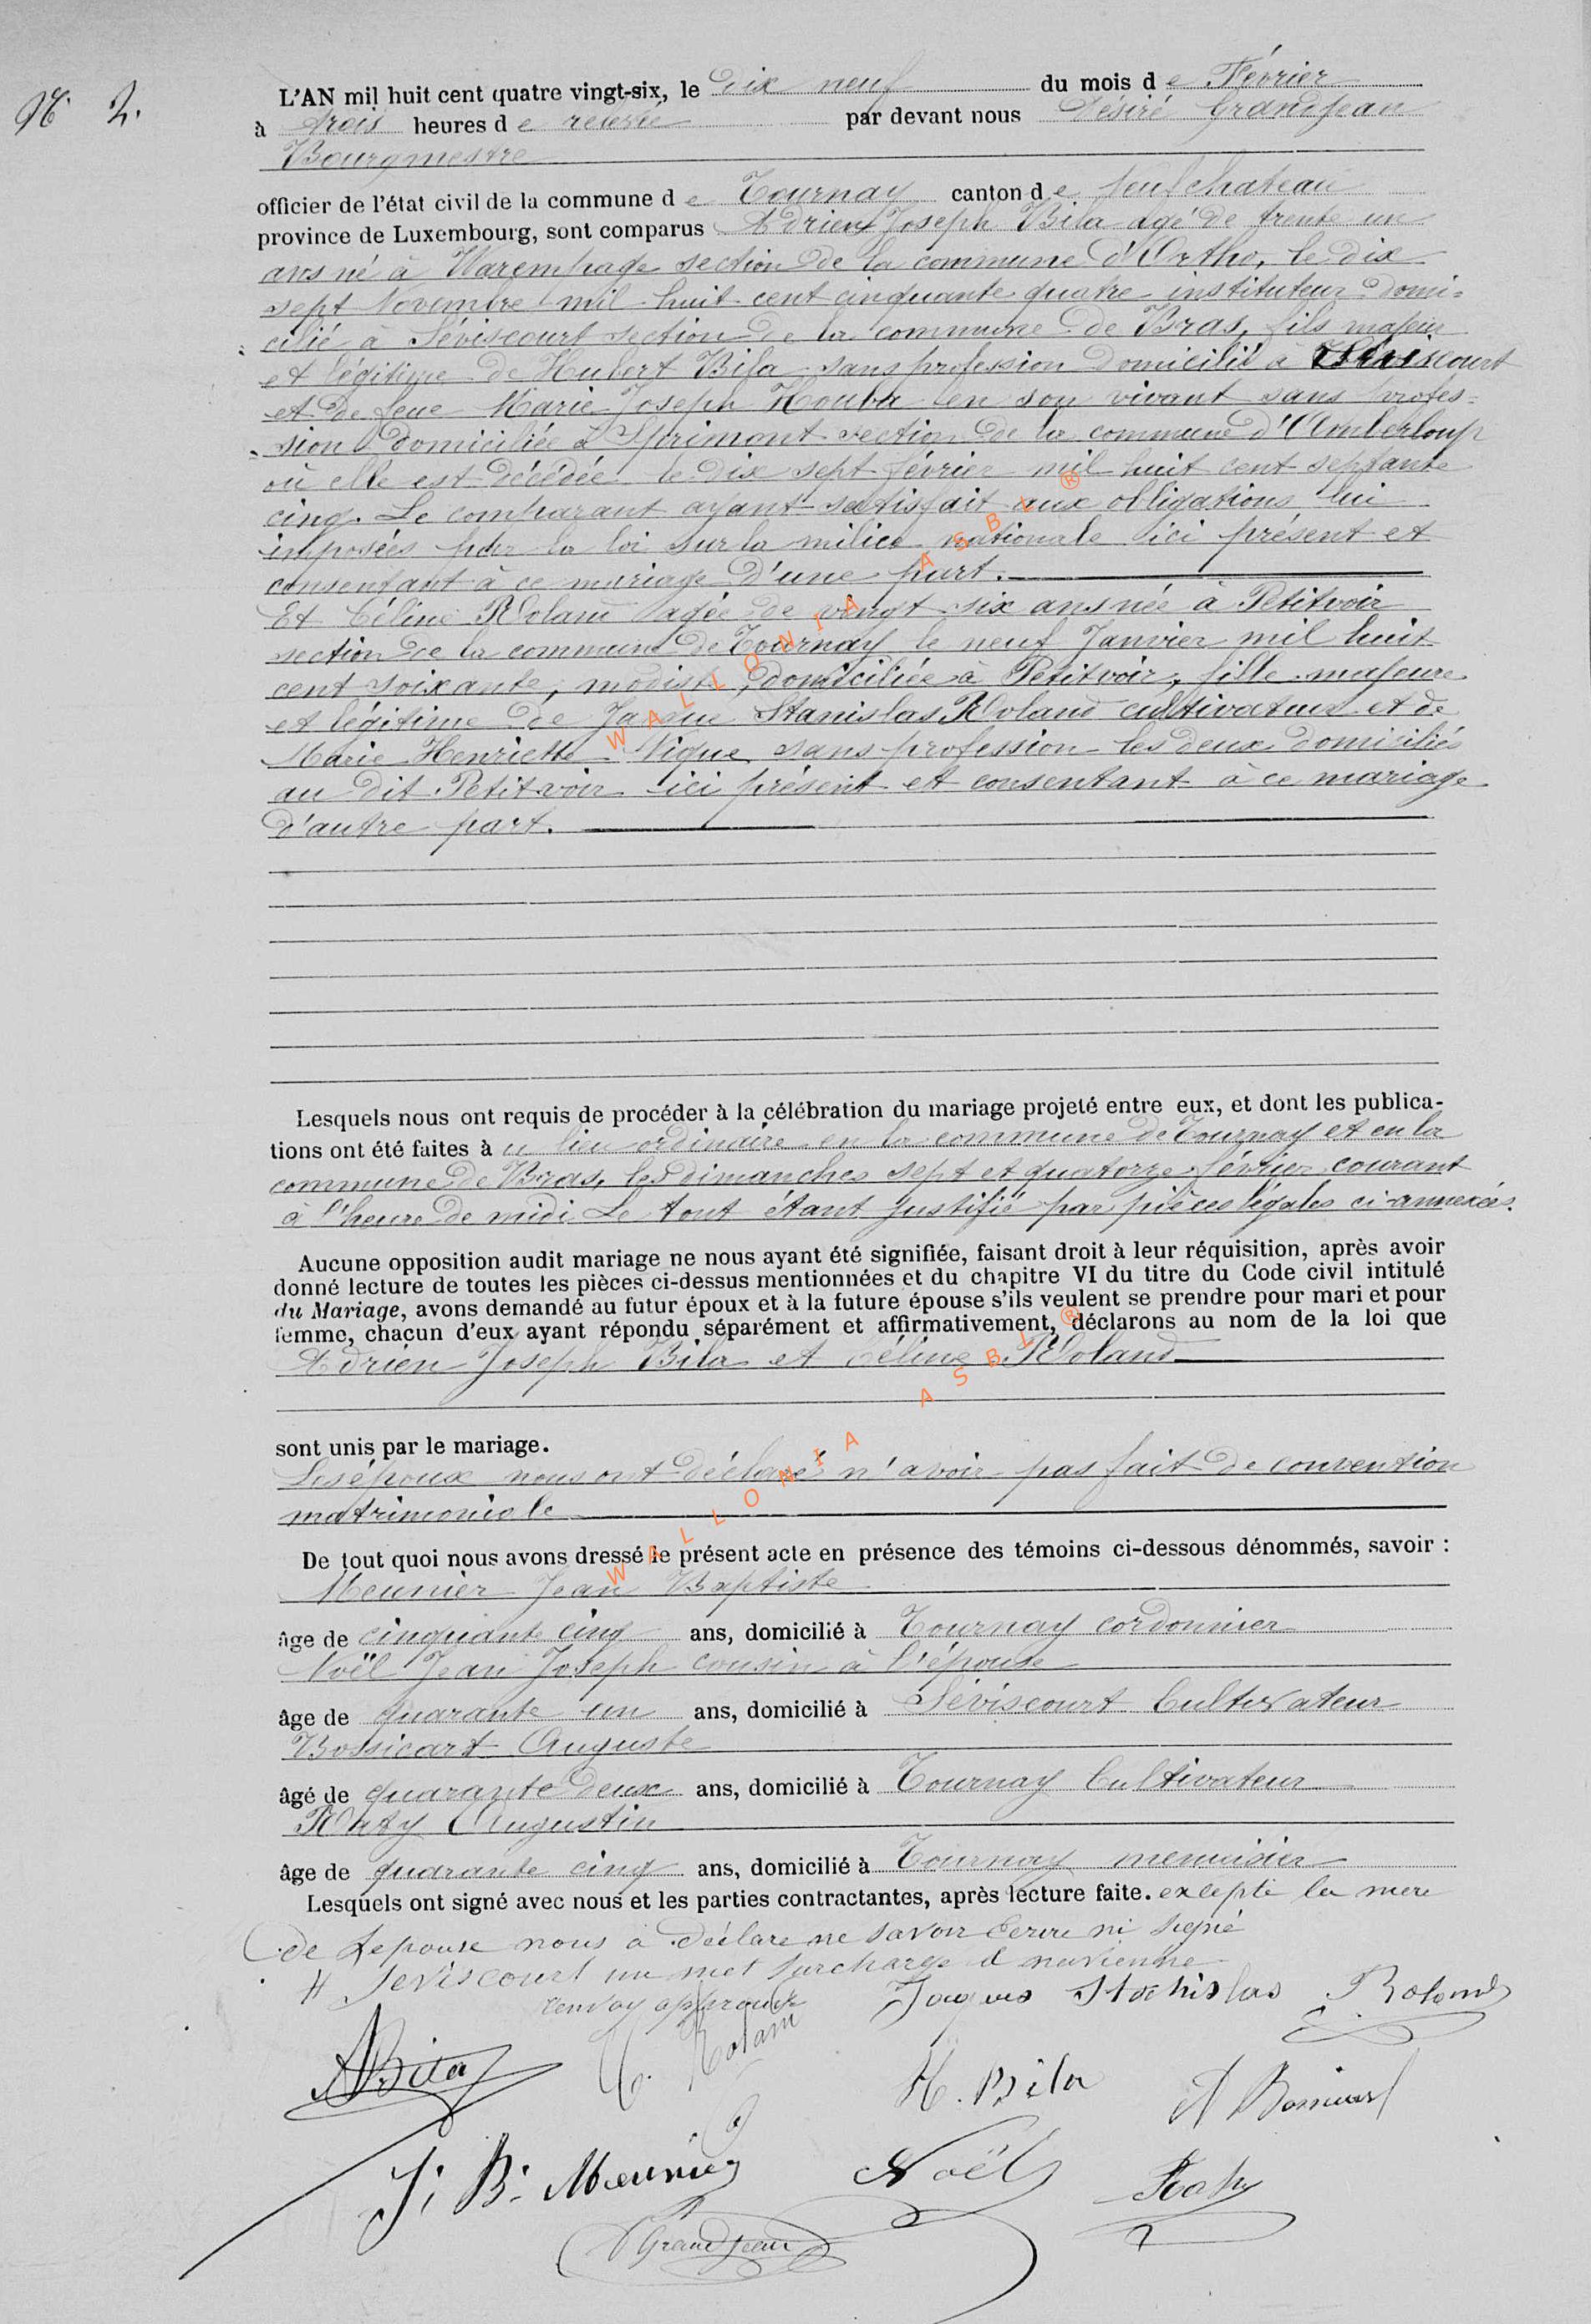 N° 2.
L'AN mil huit cent quatre vingt-six, le dix neuf du mois de Février
à trois heures de relevée par devant nous Désiré Grandjean
Bourgmestre
officier de l'état civil de la commune de Tournay canton de Neufchateau
province de Luxembourg, sont comparus Adrien Joseph Bila agé de trente un
ans né à Warempage section de la commune d'Ortho, le dix
sept Novembre mil huit cent cinquante quatre instituteur domi=
cilié à Séviscourt section de la commune de Bras, fils majeur
et légitime de Hubert Bila sans profession domicilié à Séviscourt
et de feue Marie Joseph Houba en son vivant sans profes=
sion domiciliée à Sprimont section de la commune d'Amberloup
où elle est décédée le dix sept février mil huit cent septante
cinq. Le comparant ayant satisfait aux obligations lui
imposées par la loi sur la milice nationale ici présent et
consentant à ce mariage d'une part.
Et Céline Roland agée de vingt six ans née à Petitvoir
section de la commune de Tournay le neuf Janvier mil huit
cent soixante, modiste, domiciliée à Petitvoir, fille majeure
et légitime de Jacque Stanislas Roland cultivateur et de
Marie Henriette Nique sans profession les deux domiciliés
au dit Petitvoir ici présent et consentant à ce mariage
d'autre part.
Lesquels nous ont requis de procéder à la célébration du mariage projeté entre eux, et dont les publica-
tions ont été faites à u lieu ordinaire en la commune de Tournay et en la
commune de Bras, les dimanches sept et quatorze février courant
à l'heure de midi Le tout étant justifié par pièces légales ci-annexées.
Aucune opposition audit mariage ne nous ayant été signifiée, faisant droit à leur réquisition, après avoir
donné lecture de toutes les pièces ci-dessus mentionnées et du chapitre VI du titre du Code civil intitulé
du Mariage, avons demandé au futur époux et à la future épouse s'ils veulent se prendre pour mari et pour
femme, chacun d'eux ayant répondu séparément et affirmativement, déclarons au nom de la loi que
Adrien Joseph Bila et Céline Roland
sont unis par le mariage.
Les époux nous ont déclaré n'avoir pas fait de convention
matrimoniale
De tout quoi nous avons dressé le présent acte en présence des témoins ci-dessous dénommés, savoir :
Meunier Jean Baptiste
âge de cinquante cinq ans, domicilié à Tournay cordonnier
Noël Jean Joseph cousin à l'épouse
âge de quarante un ans, domicilié à Séviscourt Cultivateur
Bossicart Auguste
âgé de quarante deux ans, domicilié à Tournay Cultivateur
Roty Augustin
âge de quarante cinq ans, domicilié à Tournay menuisier
Lesquels ont signé avec nous et les parties contractantes, après lecture faite. excepté la mere
de Lepouse nous a déclare ne savoir Ecrire ni signé
# Seviscourt un mot surcharge
renvoy approuvé
Jaques Stachislas Roland
ABila C. Roland H. Bila A Bossicart
J. B. Meunier Noël Roty
Grandjean
WALLONIA ASBL ®
WALLONIA ASBL ®